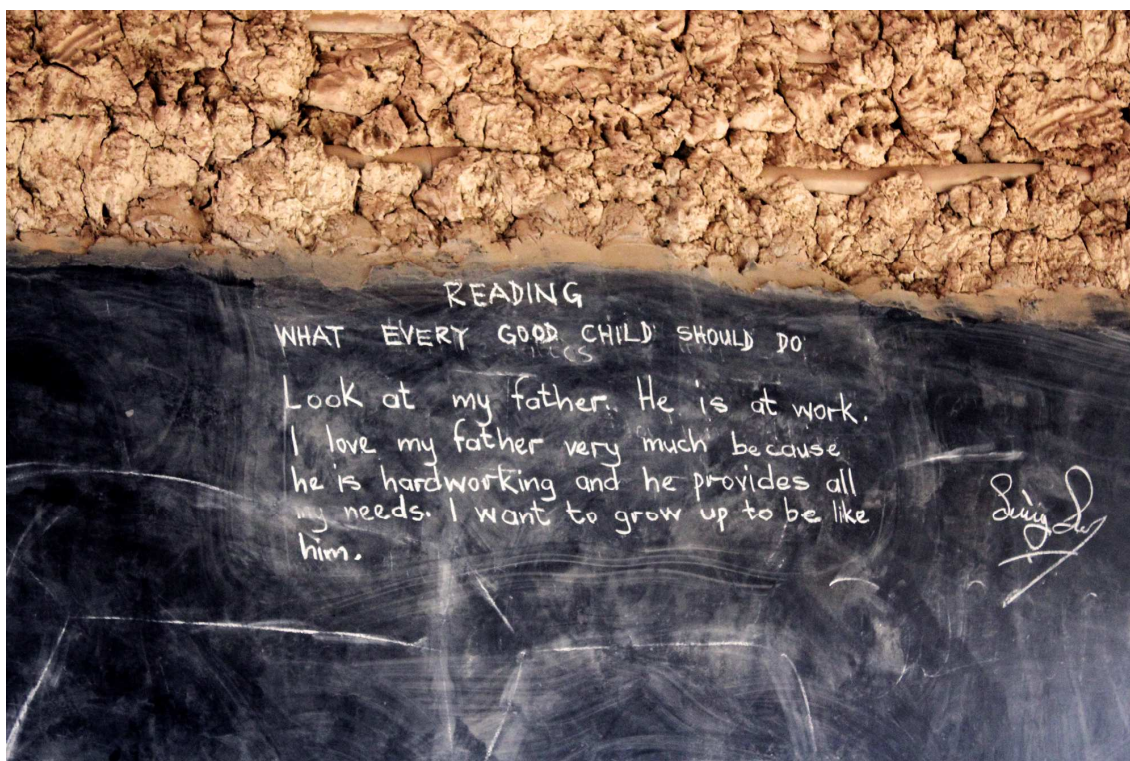 READING
WHAT EVERY GOOD CHILD SHOULD DO
Look at my father. He is at work.
I love my father very much because
he is hardworking and he provides all
my needs. I want to grow up to be like
him.